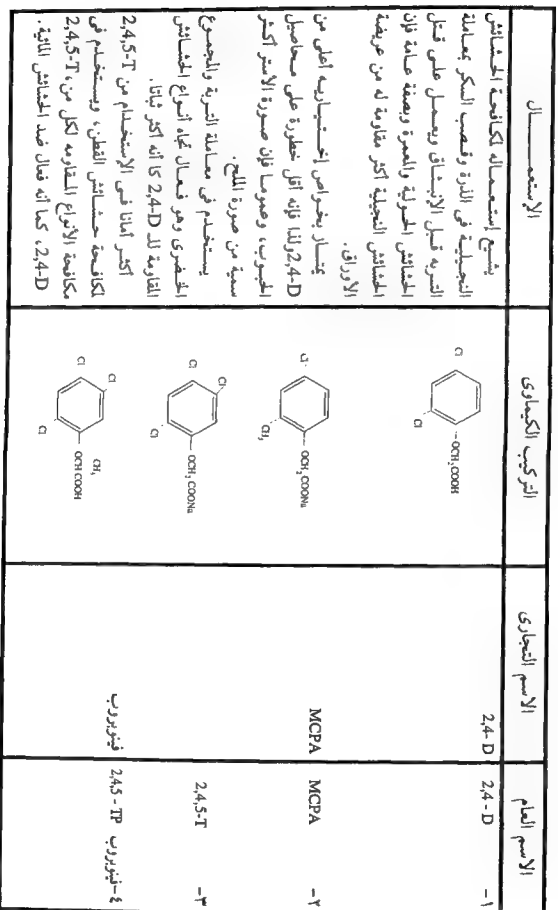 الاسم العام
الاسم التجارى
التركيب الكيماوى
الاستعمـــــال
١- 2,4 - D
2,4- D
Cl
Cl
OCH₂COOH
يشيع إستعـمـاله لمكافحة الحشـائش
النجيلـية فى الذرة وقـصب السكر بمعـاملة
التـربه قـبل الإنبـثـاق ويعـمـل على قـتـل
الحشـائش الحـولية والمعمرة وبصفة عـامة فإن
الحشائش النجيلية أكثر مقاومة له من عريضة
الأوراق.
٢- MCPA
MCPA
Cl
CH₃
OCH₂COONa
يمتـاز بخـواص إخـتـيـاريـه أعلى من
2,4-D ولذا فإنه أقل خطورة على محـاصيل
الحـبوب، وعمـوما فإن صـورة الاستر أكـثـر
سمية من صورة الملح.
٣- 2,4,5-T
Cl
Cl
Cl
OCH₂COONa
يستخـدم فى معـاملة التـربة والمجمـوع
الخـضرى وهو فـعـال تجاه أنـواع الحشـائش
المقاومة للـ 2,4-D كا أنه أكثر ثباتا.
٤- فينوبروب 2,4,5 - TP
فينوبروب
Cl
Cl
Cl
CH₃
OCH COOH
أكثـر أمـانا فـى الإستخـدام من 2,4,5-T
لمكافحة حـشـائش القطن، ويستـخـدم فى
مكافحة الأنواع المقـاومه لكل من، 2,4,5-T
2,4-D، كما أنه فعال ضد الحشائش المائية.